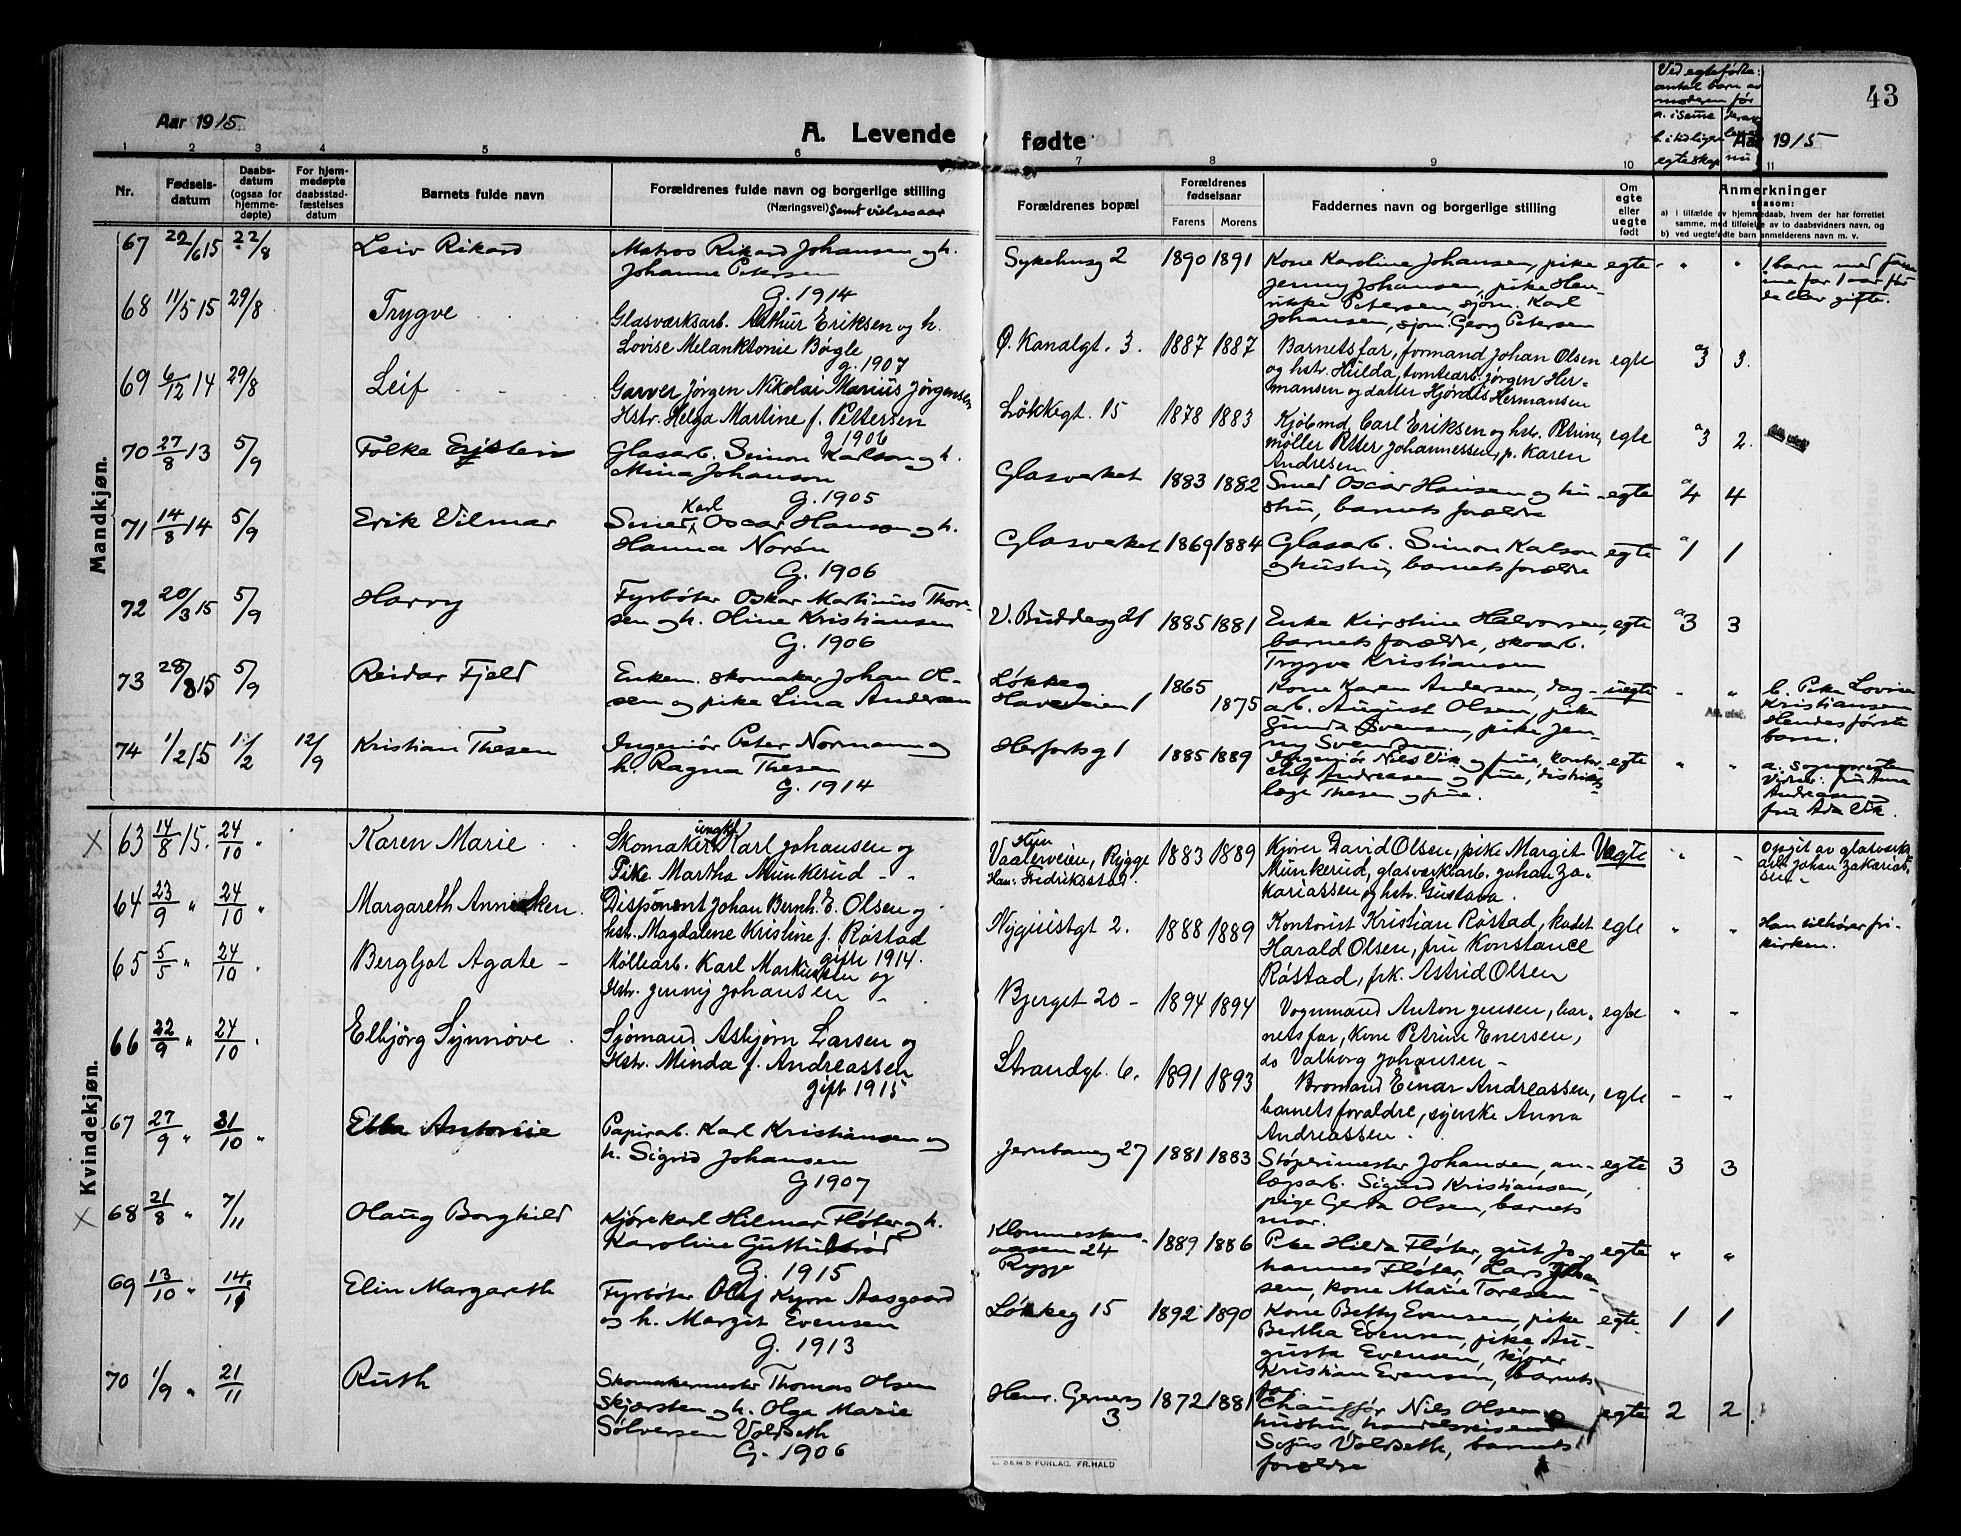 43
Ved egtefødte:
antal barn av
moderen før
a. i samme
b. i tidligere
egteskap
Aar 1915.
A. Levende
fødte
Aar 1915
1 2 3 4 5 6
7 8 9 10 11
Nr.
Fødsels-
datum
Daabs-
datum
(ogsaa for
hjemme-
døpte)
For hjem-
medøpte
daabsstad-
fæstelses
datum
Barnets fulde navn
Forældrenes fulde navn og borgerlige stilling
(Næringsvei) samt vielsesaar
Forældrenes bopæl
Forældrenes
fødselsaar
Farens Morens
Faddernes navn og borgerlige stilling
Om
egte
eller
uegte
født
Anmerkninger
saasom:
a) i tilfælde av hjemmedaab, hvem der har forrettet
samme, med tilføielse av to daabsvidners navn, og
b) ved uegtefødte barn anmelderens navn m. v.
Mandkjøn.
67 22/6 15 22/8 Leiv Rikard Matros Rikard Johansen og h.
Johanne Petersen
G. 1914
Sykehusg 2 1890 1891 Kone Karoline Johansen, pike egte " "
Jenny Johansen, pike Hen-
rikke Petersen, sjøm. Karl
Johansen, sjøm. Georg Petersen
1 barn med samme
for 1 aar før
de blev gifte.
68 11/5 15 29/8 Trygve Glasværksarb. Arthur Eriksen og h.
Lovise Melanktonie Bøgle
g. 1907
Ø. Kanalgt. 3. 1887 1887 Barnets far, formand Johan Olsen egte a3 3.
og hst. Hulda, tomtearb. Jørgen Her-
mansen og datter Hjørdis Hermansen
69 6/12 14 29/8 Leif Garver Jørgen Nikolai Marius Jørgensen
Hstr. Helga Martine f. Pettersen
g. 1906
Løkkegt. 15 1878 1883 Kjøbmd. Carl Eriksen og hst. Petrine, egte a3 2.
møller Petter Johannessen, p. Karen
Andresen
70 27/8 13 5/9 Folke Eystein Glasarb. Simon Karlson og h.
Mina Johanson
G. 1905
Glasverket 1883 1882 Smed Oscar Hansen og hu- egte a4 4
stru, barnets forældre
71 14/8 14 5/9 Erik Vilmar Smed Karl Oscar Hanson og h.
Hanna Norén
G. 1906
Glasverket 1869 1884 Glasarb. Simon Kalson egte a1 1
og hustru, barnets forældre
72 20/3 15 5/9 Harry Fyrbøter Oskar Martinius Thor-
sen og h. Oline Kristiansen
G. 1906
V. Buddesg 21 1885 1881 Enke Kirstine Halvorsen, egte a3 3
barnets forældre, skoarb.
Trygve Kristiansen
73 28/8 15 5/9 Reidar Fjeld Enkem. skomaker Johan Ol-
sen og pike Lina Andersen
Løkkeg
Haveveien 1 1865 1875 Kone Karen Andersen, dag- uegte - "
arb. August Olsen, pike
Gunda Svensen, pike Jen-
ny Svensen
b. Pike Lovise
Kristiansen
Hendes første
barn.
74 1/2 15 1/2 12/9 Kristian Thesen Ingeniør Peter Normann og
h. Ragna Thesen
G. 1914
Herfortsg 1 1885 1889 Ingeniør Nils Vik og frue, kontor- egte " "
chef Andreasen og frue, distrikts-
læge Thesen og frue.
a. sognepresten
Vidner: fru Anna
Andreasen og
fru Ada Vik
Kvindekjøn.
63 14/8 15. 24/10 " Karen Marie Skomaker ungkl Karl Johansen og
Pike Martha Munkerud
Hun
Vaalerveien, Rygge
Han: Fredriksstad. 1883 1889 Kjører David Olsen, pike Margit Uegte " "
Munkerud, glasværksarb. Johan Za-
kariassen og hst. Gustava.
Opgit av glasverks-
arb. Johan Zakarias-
sen
64 23/9 " 24/10 " Margareth Annicken. Disponent Johan Bernh. E. Olsen og
hst. Magdalene Kristine f. Røstad
gift 1914.
Nyquistgt 2. 1888 1889 Kontorist Kristian Røstad, kadet egte " "
Harald Olsen, fru Konstance
Røstad, frk. Astrid Olsen
Han tilhører fri-
kirken.
65 5/5 24/10 " Bergljot Agate Møllearb. Karl Markussen og
Hstr. Jenny Johansen
Bjerget 20 1894 1894 Vognmand Anton Jensen, bar- egte " "
nets far, kone Petrine Enersen,
do Valborg Johansen
66 22/9 " 24/10 " Elbjörg Synnöve Sjømand Asbjørn Larsen og
Hstr. Minda f. Andreassen
gift 1915
Strandgt. 6. 1891 1893 Bromand Einar Andreassen, egte " "
barnets foraldre, syerske Anna
Andreassen
67 27/9 " 31/10 " Ebba Antonie Papirarb. Karl Kristiansen og
h. Sigrid Johansen
G 1907
Jernbaneg 27 1881 1883 Støperimester Johansen, an- egte 3 3
lægsarb. Sigurd Kristiansen,
pige Gerda Olsen, barnets
mor.
68 21/8 " 7/11 Olaug Borghild Kjørekarl Hilmar Fløter og h.
Karoline
G. 1915
24
Rygge 1889 1886 Pike Hilda Fløter, gut Jo- egte " "
hannes Fløter, Hans
sen, kone Marie Toresen
69 13/10 " 14/11 Elin Margareth Fyrbøter Olaf Kyrre Aasgaard
og h. Margit Evensen
G. 1913
Løkkeg 15 1892 1890 Kone Betty Evensen, pike egte 1 1
Bertha Evensen, pike Au-
gusta Evensen, kjører
Kristian Evensen, barnets
far
70 1/9 " 21/11 Ruth Skomakermester Thomas Olsen
Skjørsten og h. Olga Marie
Sølversen Voldseth
G. 1906
Henr. Gernerg
3 1872 1881 Chauffør Nils Olsen og egte 2 2
hustru, handelsreisende
Sofus Voldseth, barnets
forældre
E. SEM'S FORLAG, FR.HALD